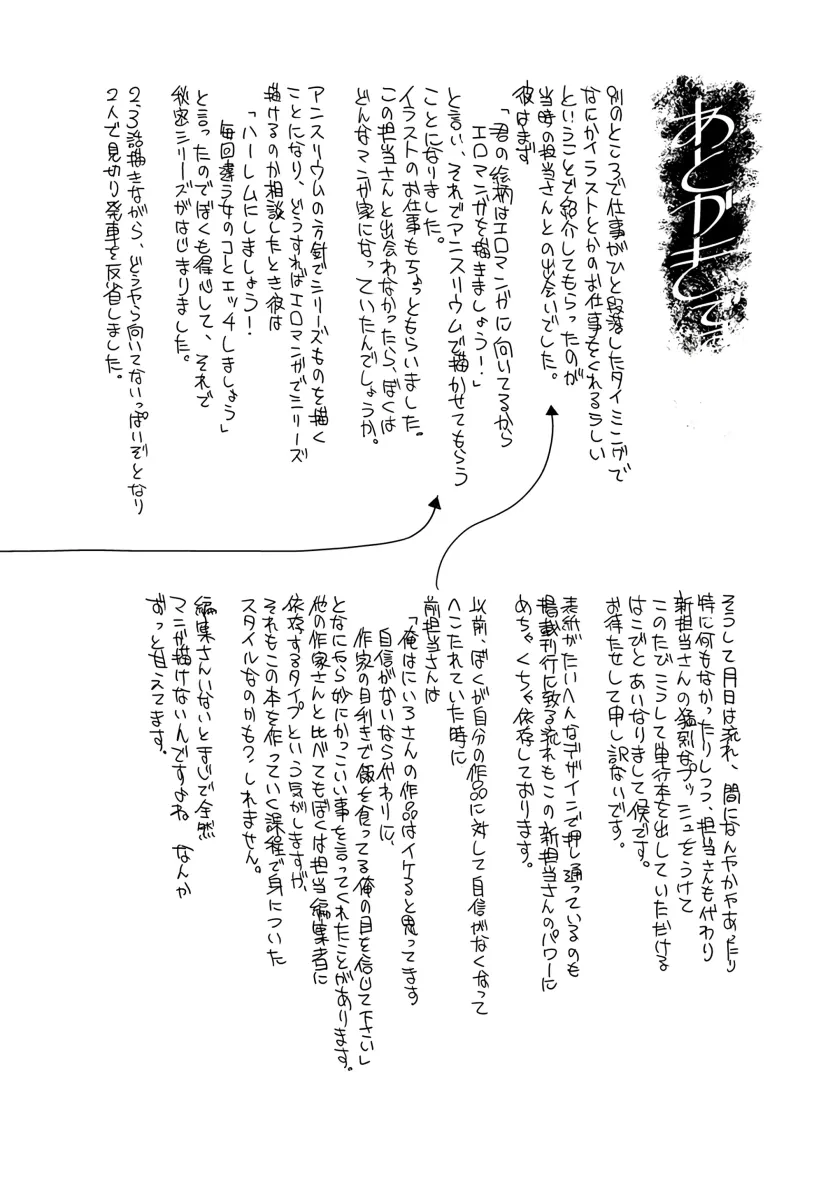 あとがきです
別のところで仕事がひと段落したタイミングで
なにかイラストとかのお仕事をくれるらしい
ということで紹介してもらったのが
当時の担当さんとの出会いでした。
彼はまず
「君の絵柄はエロマンガに向いてるから
エロマンガを描きましょう!」
と言い、それでアンスリウムで描かせてもらう
ことになりました。
イラストのお仕事もちょっともらいました。
この担当さんと出会わなかったら、ぼくは
どんなマンガ家になっていたんでしょうか。
アンスリウムの方針でシリーズものを描く
ことになり、どうすればエロマンガでシリーズ
描けるのか相談したとき彼は
「ハーレムにしましょう!
毎回違う女のコとエッチしましょう」
と言ったのでぼくも得心して、それで
秘密シリーズがはじまりました。
2、3話描きながら、どうやら向いてないっぽいぞとなり
2人で見切り発車を反省しました。
そうして月日は流れ、間になんやかやあったり
特に何もなかったりしつつ、担当さんも代わり
新担当さんの猛烈なプッシュをうけて
このたびこうして単行本を出していただける
はこびとあいなりまして候です。
お待たせして申し訳ないです。
表紙がたいへんなデザインで押し通っているのも
掲載刊行に致る流れもこの新担当さんのパワーに
めちゃくちゃ依存しております。
以前、ぼくが自分の作品に対して自信がなくなって
へこたれていた時に
前担当さんは
「俺はにいろさんの作品はイケると思ってます
自信がないなら代わりに、
作家の目利きで飯を食ってる俺の目を信じて下さい」
となにやら妙にかっこいい事を言ってくれたことがあります。
他の作家さんと比べてもぼくは担当編集者に
依存するタイプという気がしますが、
それもこの本を作っていく課程で身についた
スタイルなのかも?しれません。
編集さんいないとまじで全然
マンガ描けないんですよね なんか
ずっと甘えてます。